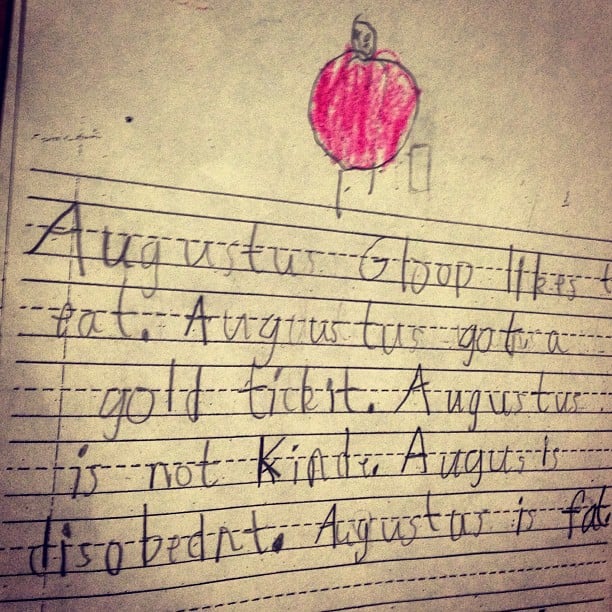 Augustus Gloop likes t
eat. Augustus got a
gold tickit. Augustus
is not Kind. Augus is
disobednt. Augustus is fat